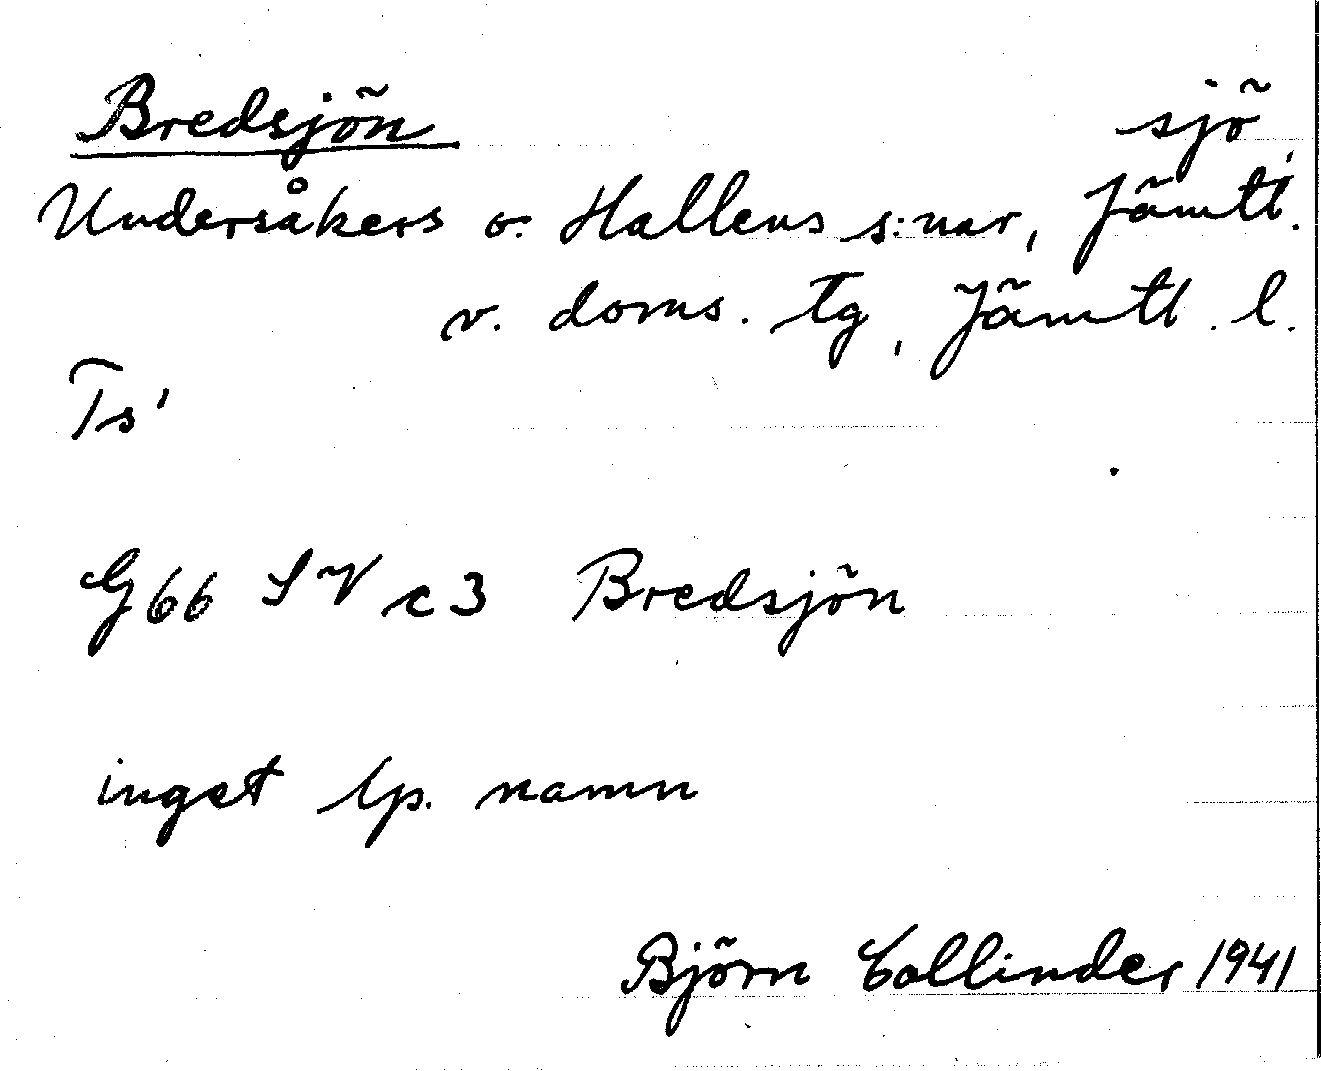 Bredsjön sjö
Undersåkers o. Hallens s:nar, Jämtl.
v. doms. tg, Jämtl. l.
Ts'
G66 SV c3 Bredsjön
inget lp. namn
Björn Collinder 1941